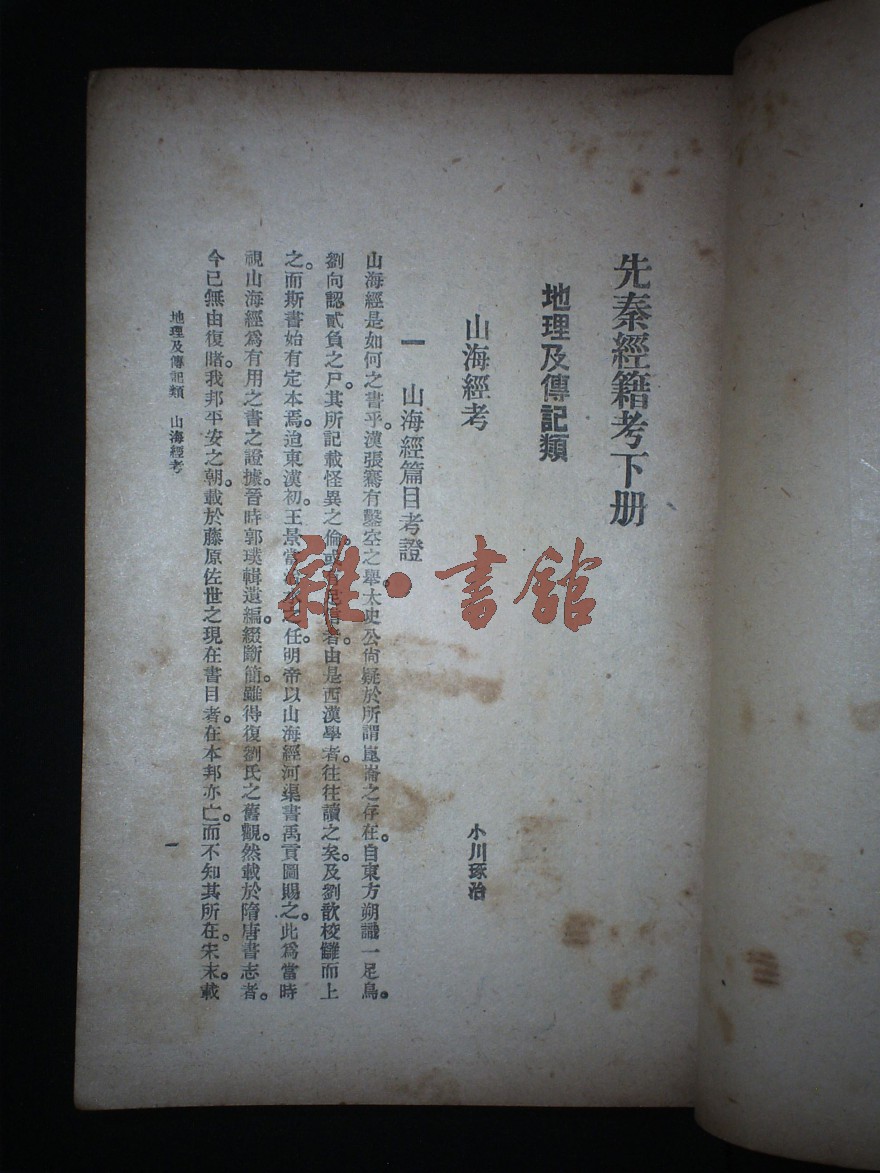 先秦經籍考下册
地理及傳記類
山海經考
小川琢治
一 山海經篇目考證
山海經是如何之書乎。漢張騫有鑿空之舉。太史公尙疑於所謂崑崙之存在。自東方朔識一足鳥。
劉向認貳負之尸。其所記載怪異之倫。或足信者。由是西漢學者。往往讀之矣。及劉歆校讎而上
之。而斯書始有定本焉。迨東漢初。王景當之任。明帝以山海經河渠書禹貢圖賜之。此爲當時
視山海經爲有用之書之證據。晉時郭璞輯遺編。綴斷簡。雖得復劉氏之舊觀。然載於隋唐書志者。
今已無由復睹。我邦平安之朝。載於藤原佐世之現在書目者。在本邦亦亡。而不知其所在。宋末。載
地理及傳記類 山海經考
一
雜·書館